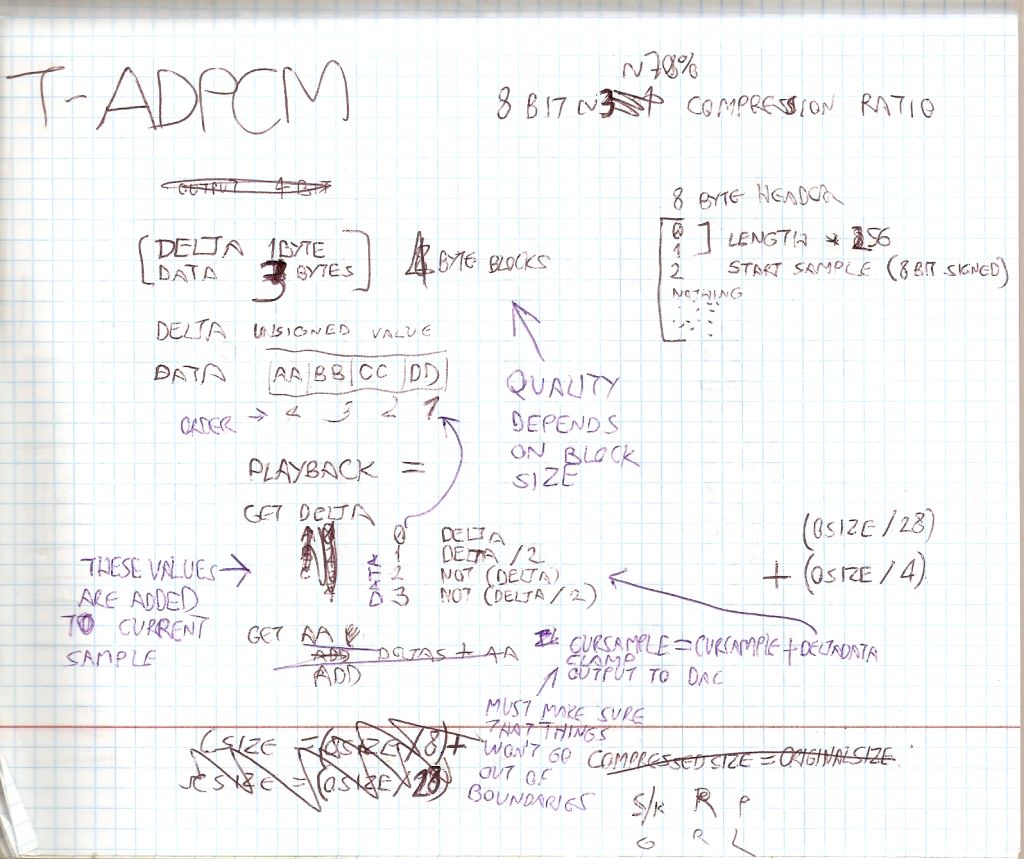 T-ADPCM
~78%
8 BIT ~3 COMPRESSION RATIO
OUTPUT 4 BIT
8 BYTE HEADER
0
1
LENGTH * 256
2 START SAMPLE (8 BIT SIGNED)
NOTHING
DELTA 1 BYTE
DATA 3 BYTES
4 BYTE BLOCKS
DELTA UNSIGNED VALUE
DATA AA BB CC DD
ORDER → 4 3 2 1
QUALITY
DEPENDS
ON BLOCK
SIZE
PLAYBACK =
GET DELTA
DATA
0 DELTA
1 DELTA/2
2 NOT (DELTA)
3 NOT (DELTA/2)
THESE VALUES →
ARE ADDED
TO CURRENT
SAMPLE
(OSIZE/28)
+ (OSIZE/4)
GET AA
ADD DELTAS + AA
ADD
CURSAMPLE = CURSAMPLE + DELTADATA
CLAMP
OUTPUT TO DAC
MUST MAKE SURE
THAT THINGS
WON'T GO
OUT OF
BOUNDARIES
CSIZE = (OSIZE/8)+
CSIZE = (OSIZE/28)
COMPRESSEDSIZE = ORIGINALSIZE
S/K R P
G R L